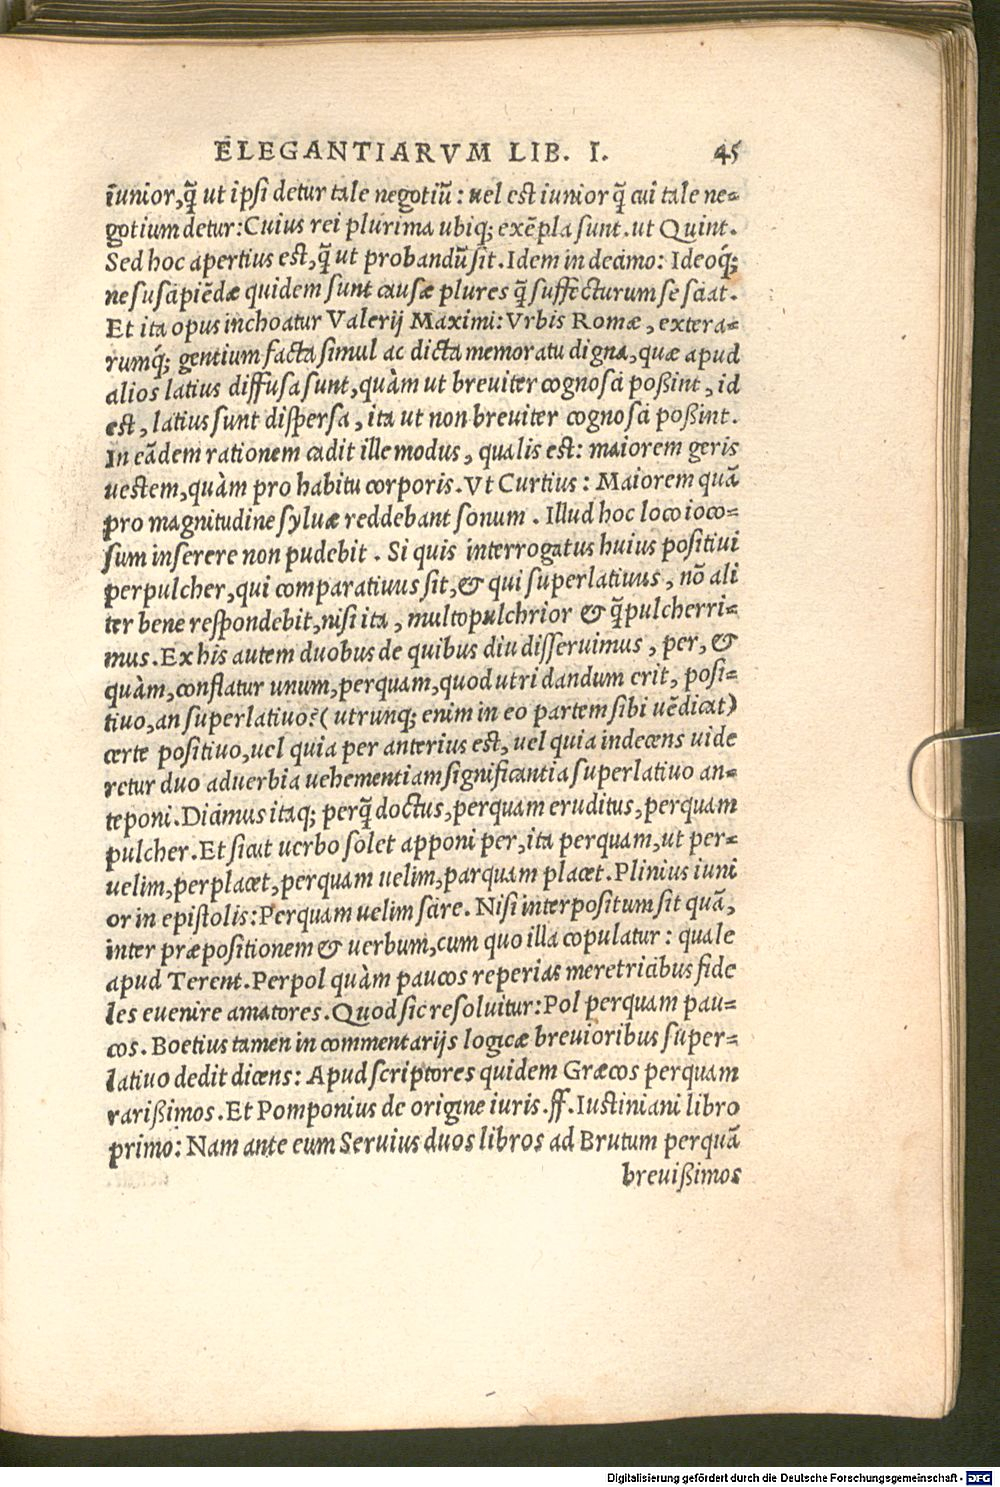 ELEGANTIARVM LIB. I. 45
iunior,q̃ ut ipsi detur tale negotiũ: uel est iunior q̃ cui tale ne-
gotium detur: Cuius rei plurima ubiq; exẽpla sunt. ut Quint.
Sed hoc apertius est, q̃ ut probandũ sit. Idem in decimo: Ideoq́;
ne suscipiẽdæ quidem sunt causæ plures q̃ suffecturum se sciat.
Et ita opus inchoatur Valerij Maximi: Vrbis Romæ, extera-
rumq́; gentium facta simul ac dicta memoratu digna, quæ apud
alios latius diffusa sunt, quàm ut breuiter cognosci poßint, id
est, latius sunt dispersa, ita ut non breuiter cognosci poßint.
In eãdem rationem cadit ille modus, qualis est: maiorem geris
uestem, quàm pro habitu corporis. Vt Curtius: Maiorem quã
pro magnitudine syluæ reddebant sonum. Illud hoc loco ioco-
sum inserere non pudebit. Si quis interrogatus huius positiui
perpulcher, qui comparatiuus sit, & qui superlatiuus, nõ ali
ter bene respondebit, nisi ita, multopulchrior & q̃pulcherri-
mus. Ex his autem duobus de quibus diu disseruimus, per, &
quàm, conflatur unum, perquam, quod utri dandum erit, posi-
tiuo, an superlatiuo? (utrunq; enim in eo partem sibi uẽdicat)
certe positiuo, uel quia per anterius est, uel quia indecens uide
retur duo aduerbia uehementiam significantia superlatiuo an-
teponi. Dicimus itaq; perq̃ doctus, perquam eruditus, perquam
pulcher. Et sicut uerbo solet apponi per, ita perquam, ut per-
uelim, perplacet, perquam uelim, parquam placet. Plinius iuni
or in epistolis: Perquam uelim scire. Nisi interpositum sit quã,
inter præpositionem & uerbum, cum quo illa copulatur: quale
apud Terent. Perpol quàm paucos reperias meretricibus fide
les euenire amatores. Quod sic resoluitur: Pol perquam pau-
cos. Boetius tamen in commentarijs logicæ breuioribus super-
latiuo dedit dicens: Apud scriptores quidem Græcos perquam
rarißimos. Et Pomponius de origine iuris. ff. Iustiniani libro
primo: Nam ante eum Seruius duos libros ad Brutum perquã
breuißimos
Digitalisierung gefördert durch die Deutsche Forschungsgemeinschaft - DFG